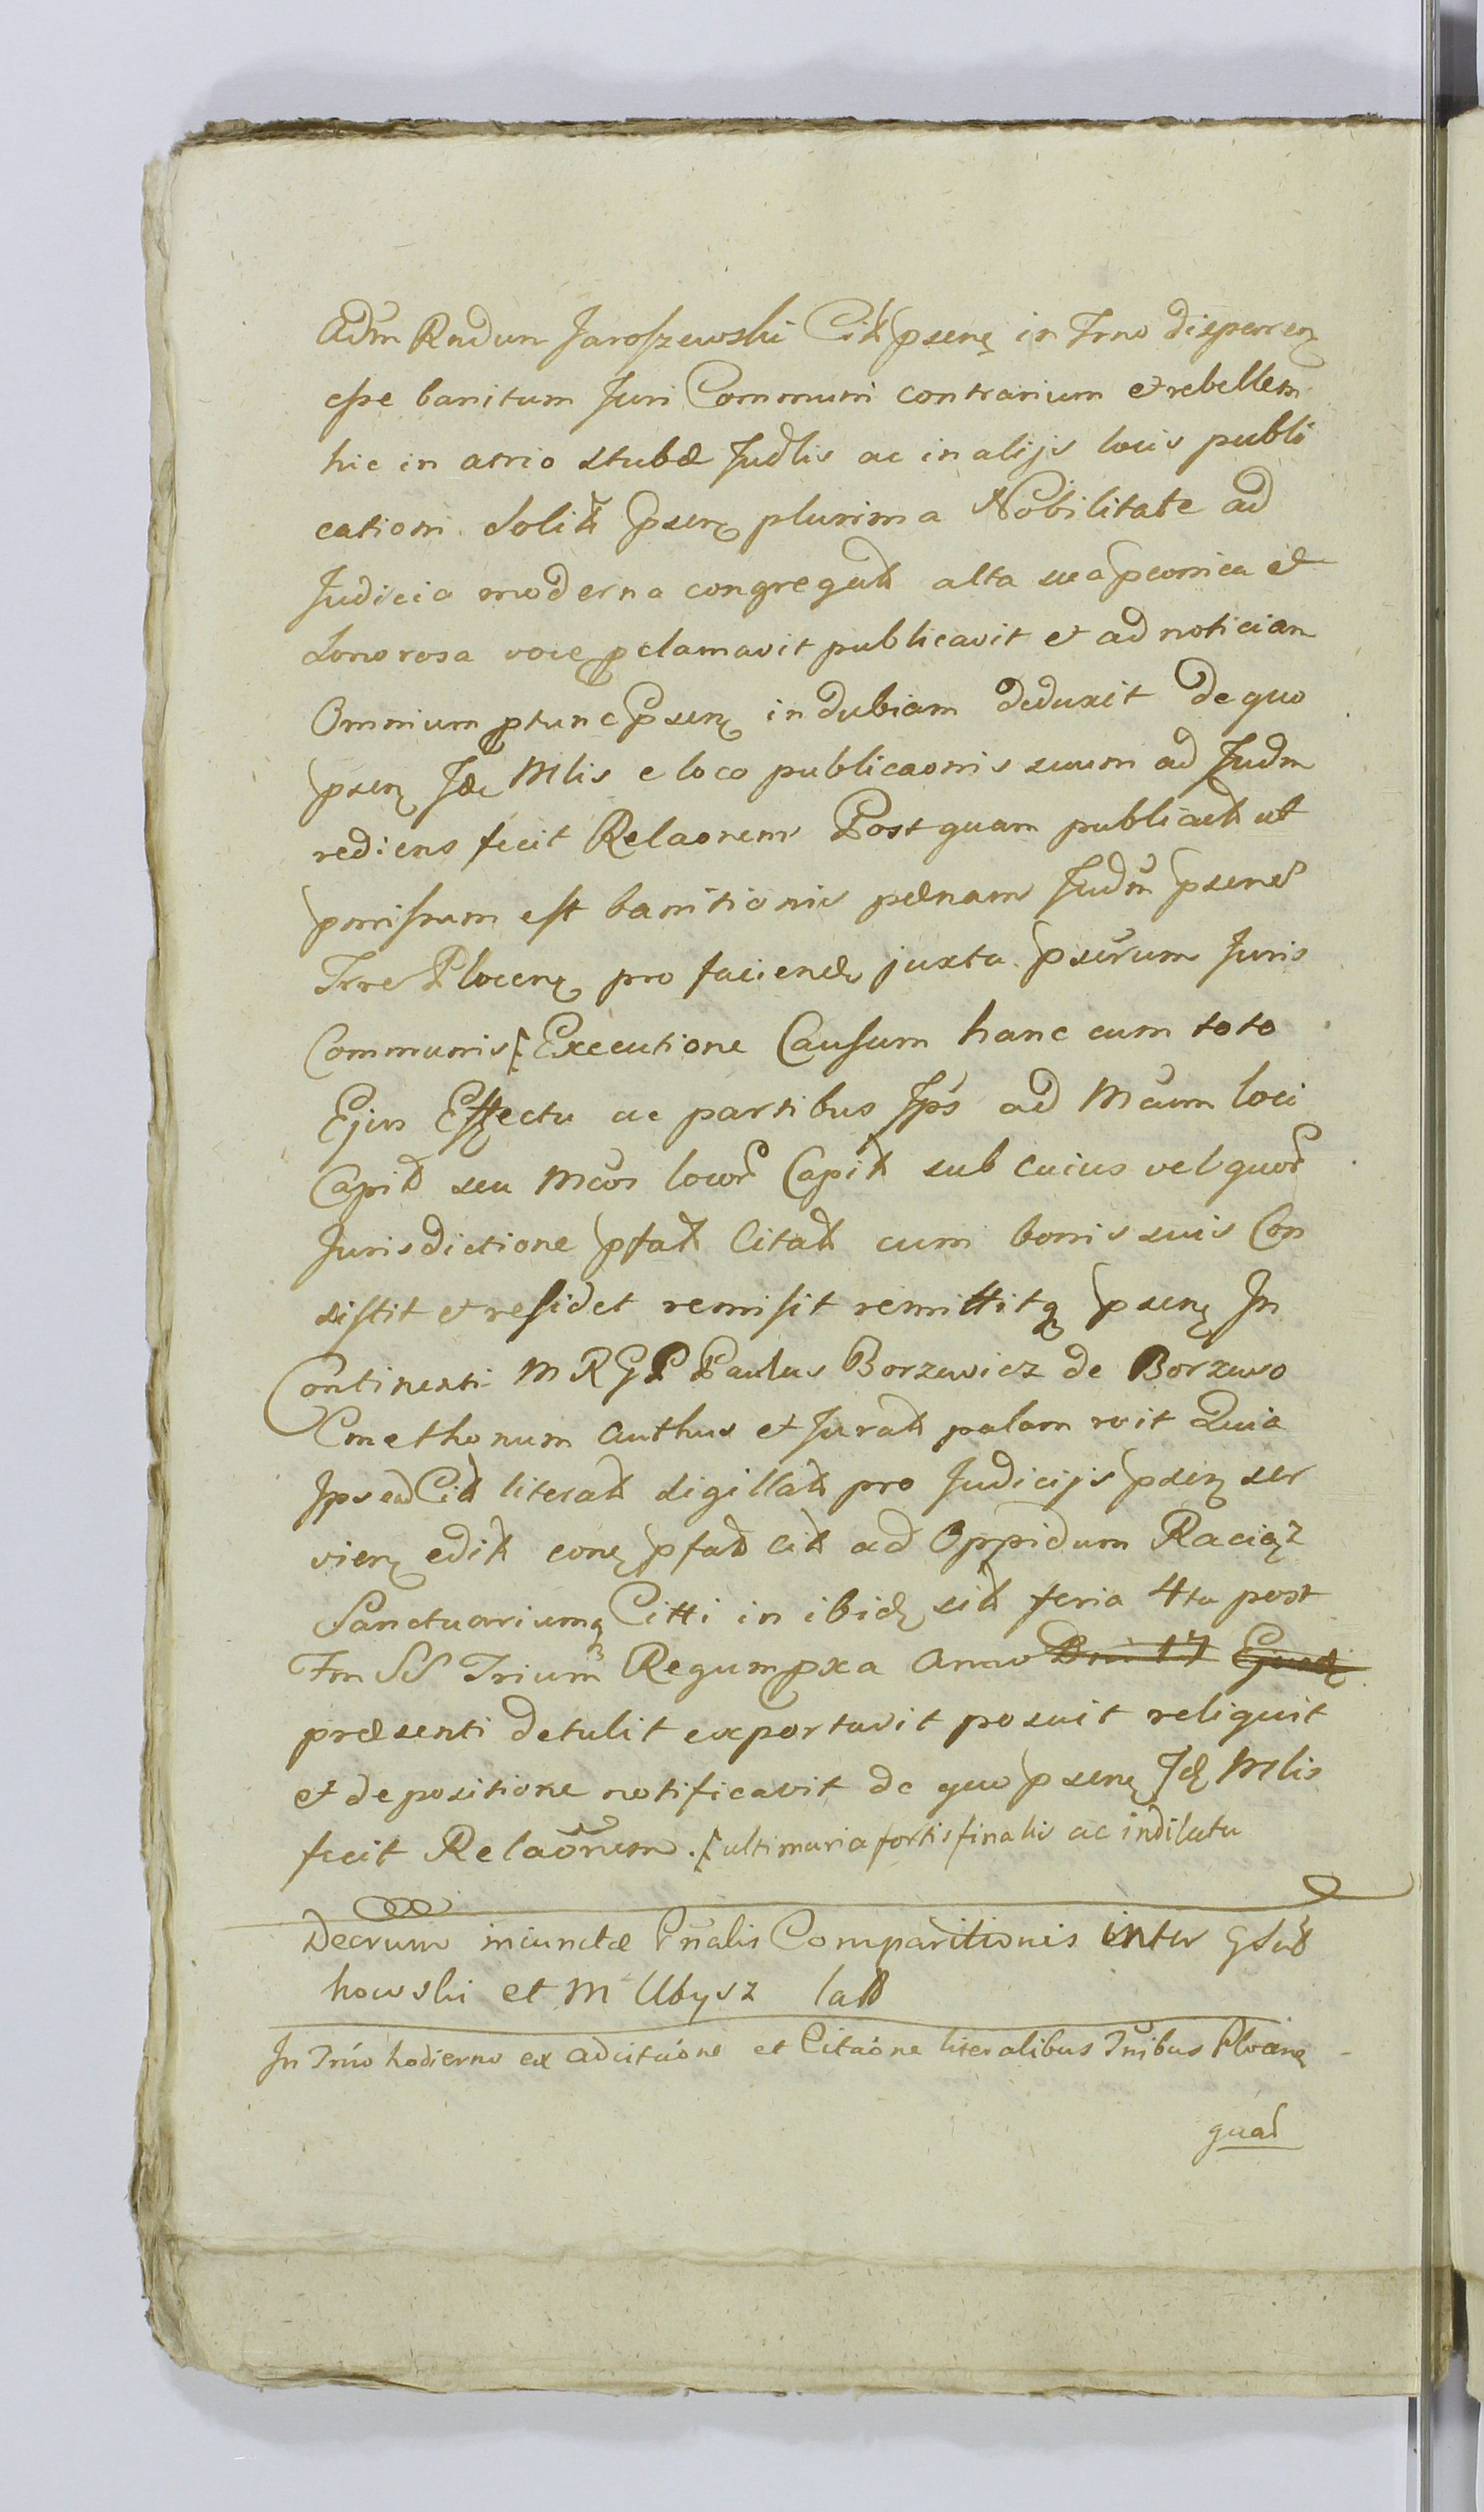 Adm Rndum Jaroszewski Citt psenę in Trno disparen
esse banitum Juri Communi contrarium et rebellem
hic in atrio stubæ Judlis ac in alijs locis publi
cationi solitt psenę plurima Nobilitate ad
Judicia moderna congregatt alta sua pconica et
sonorosa voce pclamavit publicavit et ad noticiam
Omnium ptunc psenę indubiam deduxit de quo
psenę Idę Mlis e loco publicaonis suum ad Judm
rediens fecit Relaonem Postquam publicatt ut
pmissum est banitionis pænam Judm psens
Trre Plocenę pro faciendę juxta pscrum Juris
Communis [ Executione Causam hanc cum toto
Ejus Effectu ac partibus Jps ad Mcum loci
Capitt seu Mcos locor Capitt sub cuius vel quor
Jurisdictione pfatt Citatt cum bonis suis Con
sistit et residet remisit remittitq psenę In
Continenti M R G P Paulus Borzewicz de Borzewo
Cmethonum authus et Juratt palam roit Quia
Jpse ad Citt literatt sigillatt pro Judicijs psenę ser
vienę editt conę pfatt citt ad Oppidum Raciąz
Sanctuariumq Citti in ibidę sitt feria 4ta post
Fm SS Trium Regum pxa Anno Dni 17 Ejusdę
præsenti detulit exportavit posuit reliquit
et depositione notificavit de quo psenę Idę Mlis
fecit Relaonem. [ ultimaria fortis finalis ac indilatu
Decrum iniunctæ Pnalis Comparitionis inter G
howski et M Ubysz latt
In Trno hodierno ex adcitaone et Citaone literalibus Tnibus Plocenę
quatt